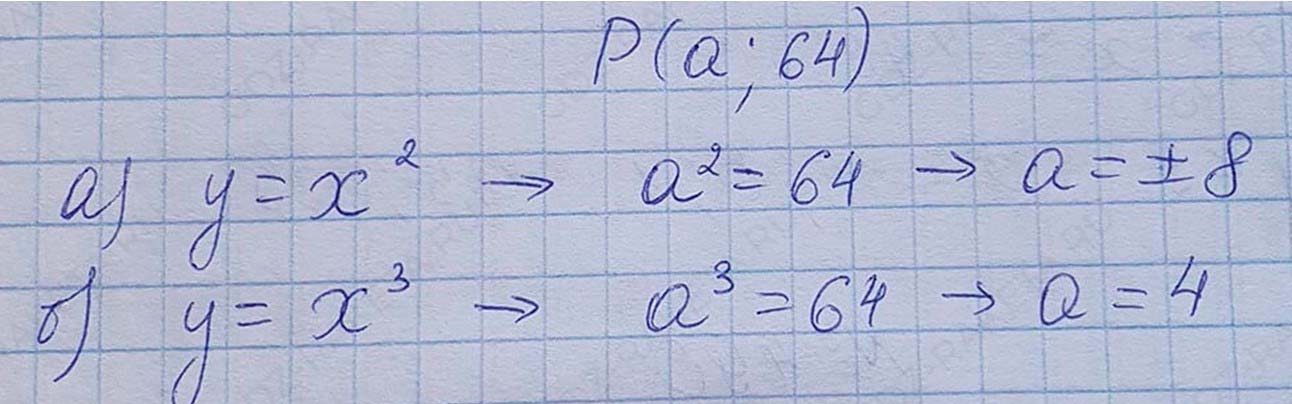 P(a; 64)
а) y = x² → a² = 64 → a = ±8
б) y = x³ → a³ = 64 → a = 4